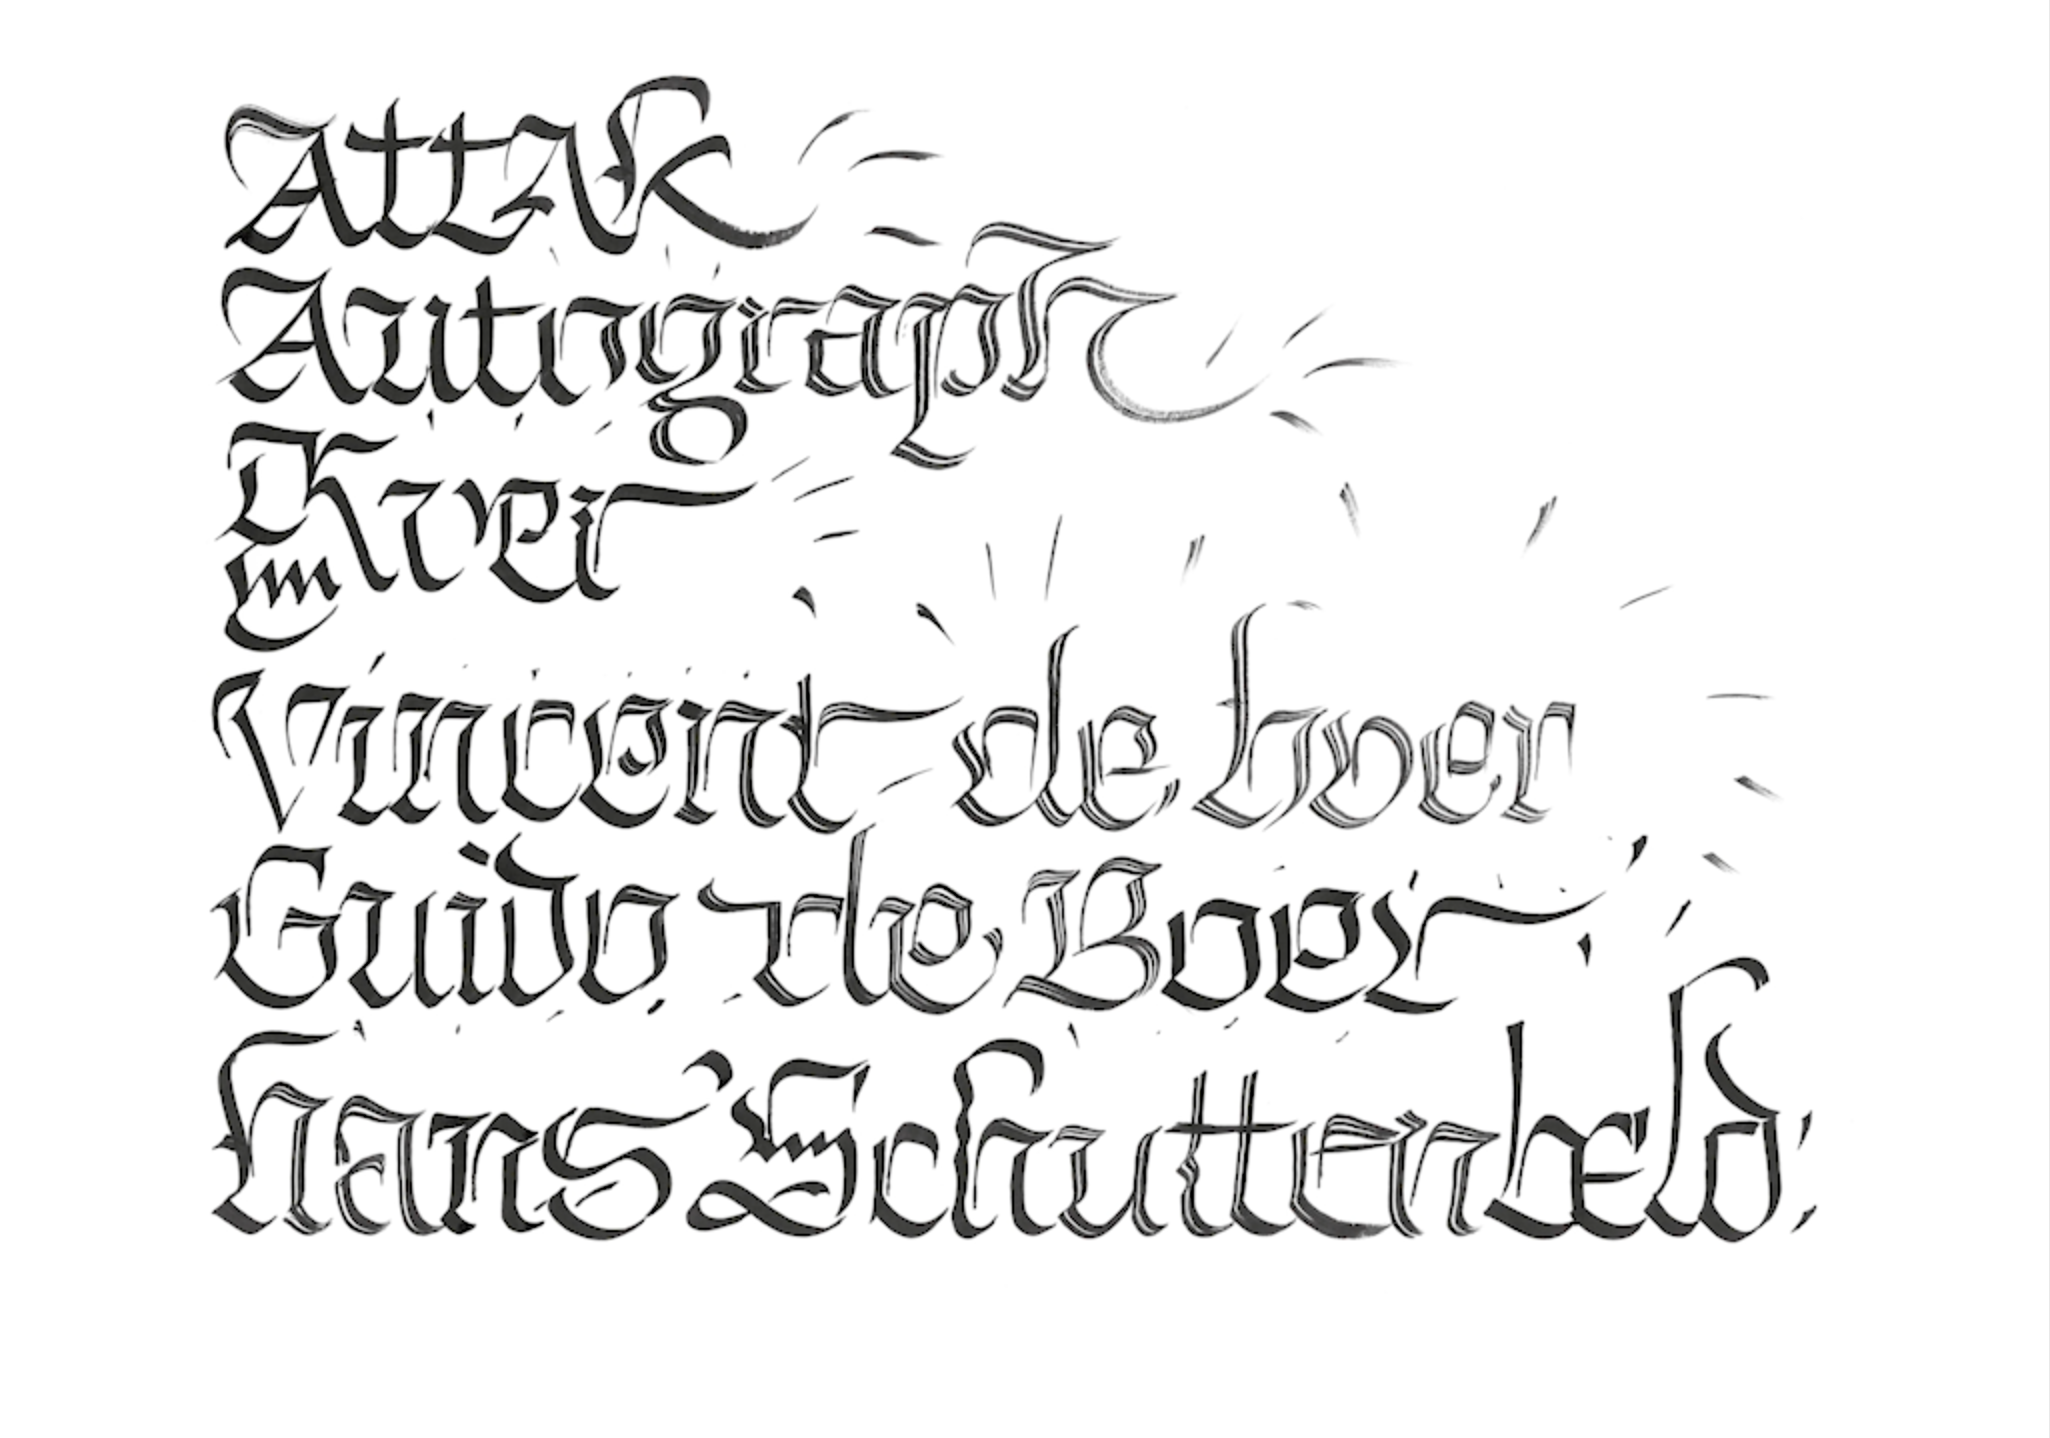 Attak
Autograph
Vincent de boer
Guido de Boer
hans Schuttenbeld